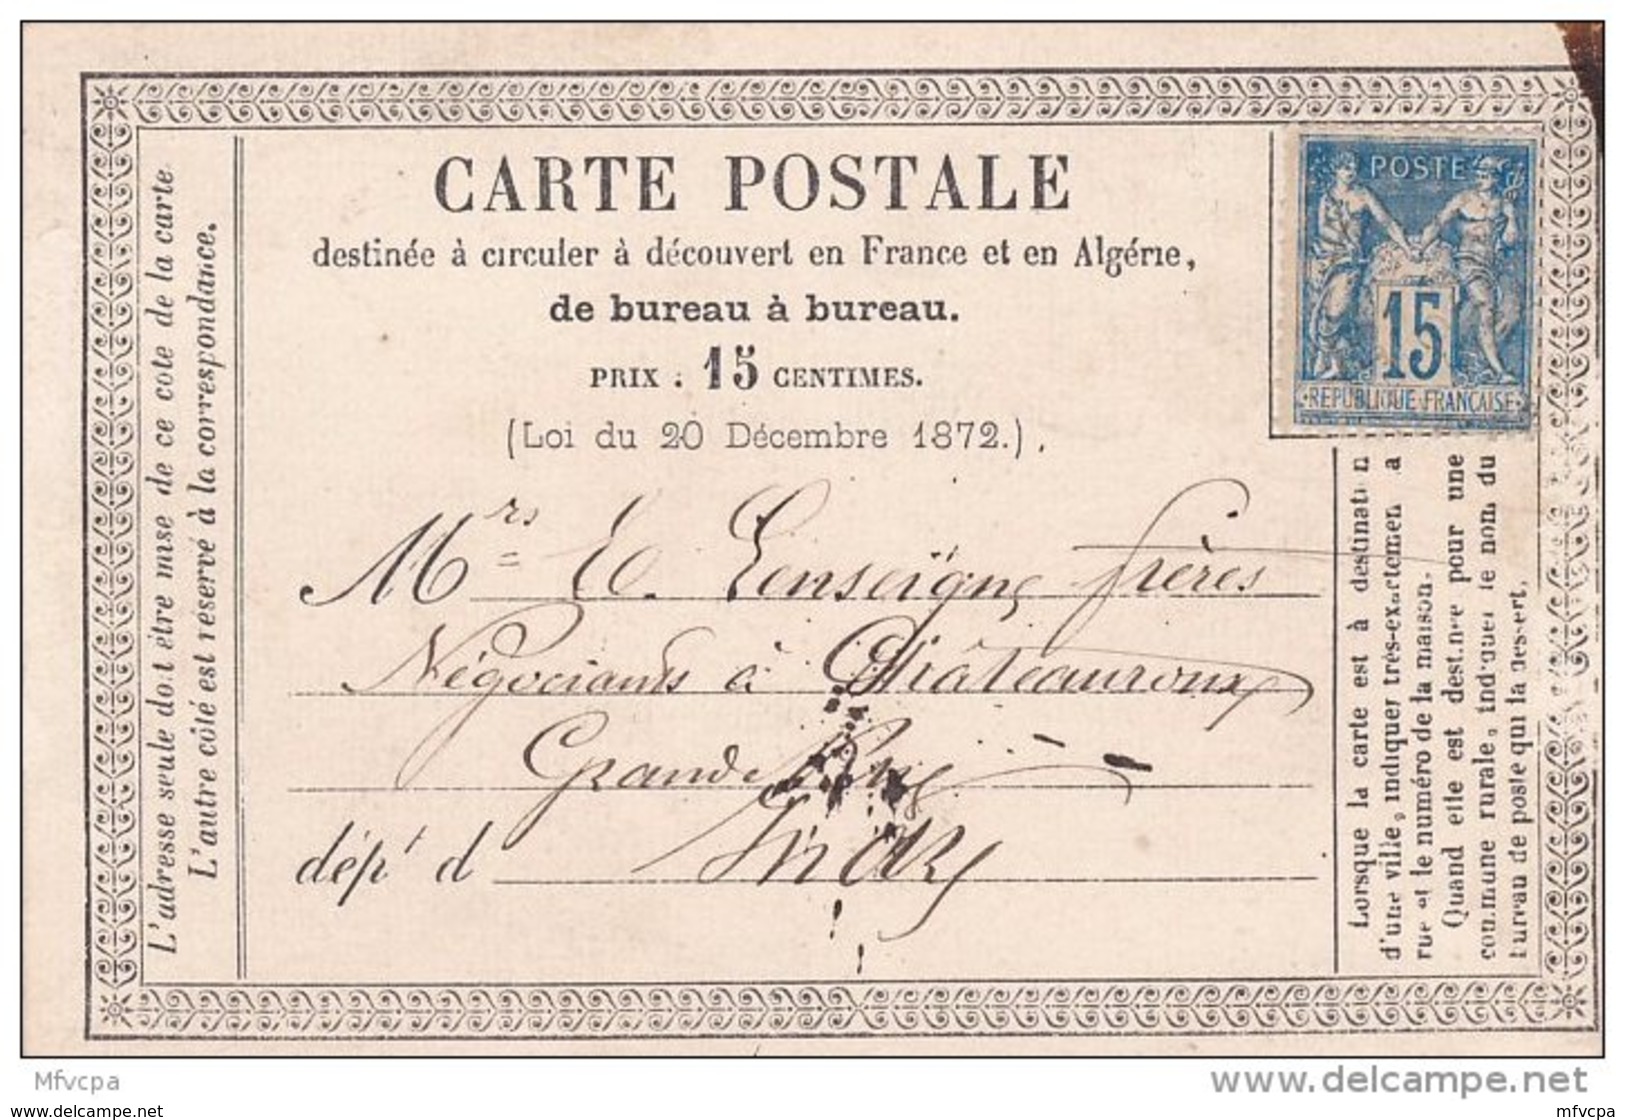 CARTE POSTALE
destinée à circuler à découvert en France et en Algérie,
de bureau à bureau.
PRIX : 15 CENTIMES.
(Loi du 20 Décembre 1872.)
POSTE
15
REPUBLIQUE FRANCAISE
Mrs E. Lenseigne frères
Négociants à Châteauroux
Grande Rue
dépt d Indre
L'adresse seule doit être mise de ce coté de la carte.
L'autre côté est réservé à la correspondance.
Lorsque la carte est à destination
d'une ville, indiquer très-exactement la
rue et le numéro de la maison.
Quand elle est destinée pour une
commune rurale, indiquer le nom du
bureau de poste qui la dessert.
Mfvcpa
www.delcampe.net
mfvcpa.delcampe.com
mfvcpa